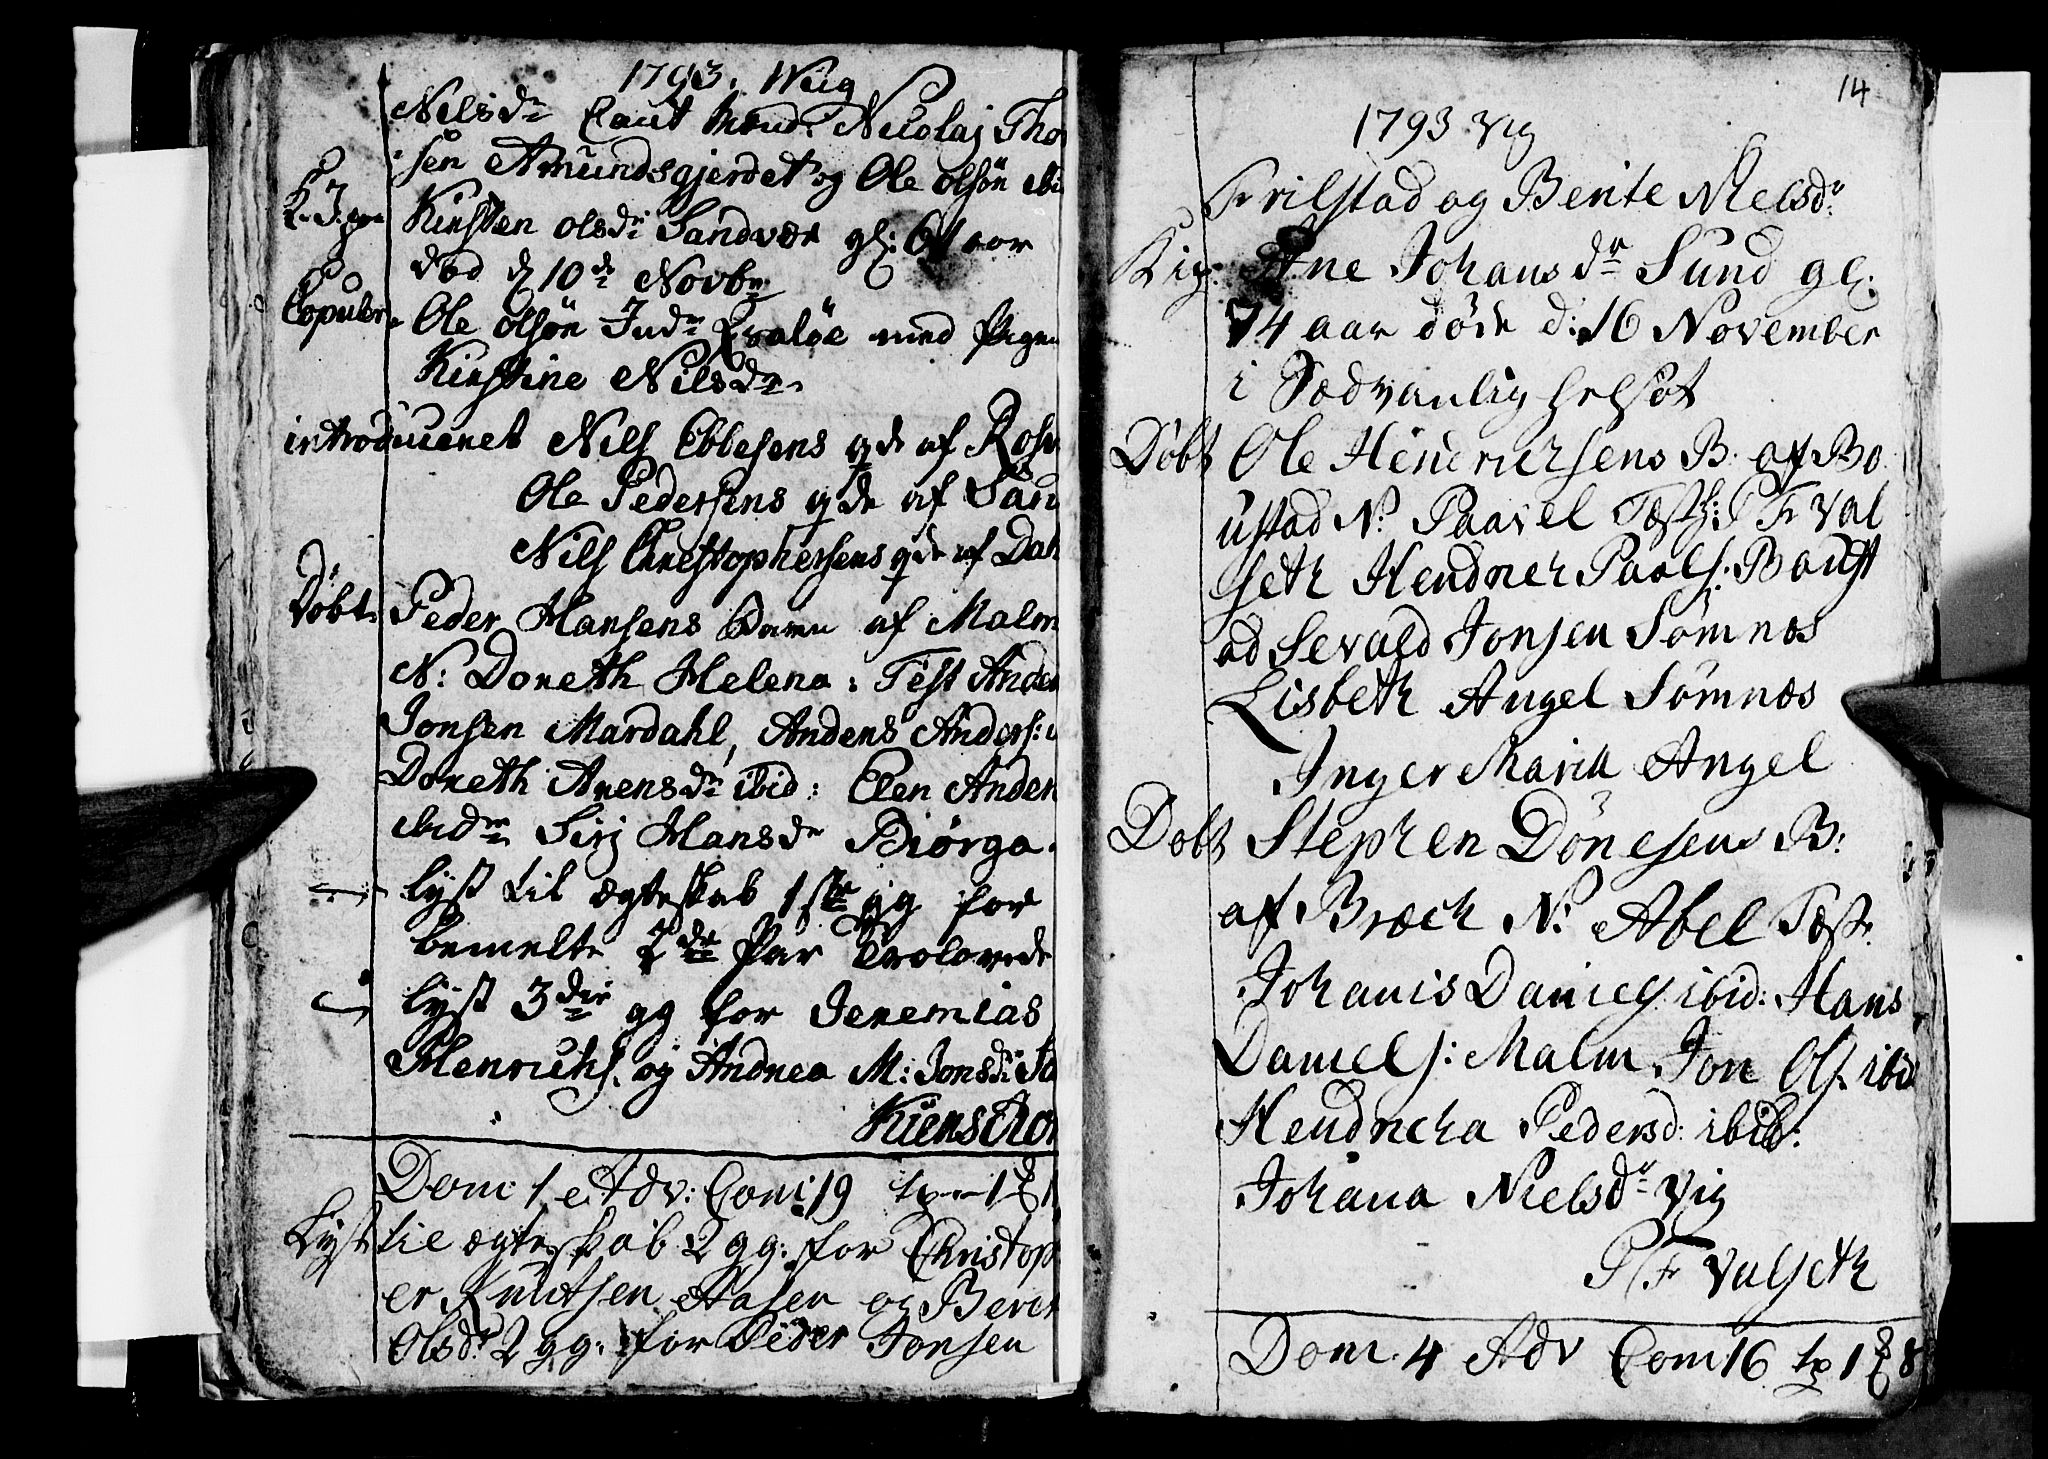 1793. Wiig
Nilsdr Caut mænd. Nicolaj Tho
sen Amundsgjerdet og Ole Olsøn ibi
K. J. paa Kirsten Olsdr Sandvær gl: 61 aar
død d 10de Novbr
Copuler Ole Olsøn Indr Qvaløe med Pigen
Kirstine Nilsdr
introduceret Nils Ebbesens qde af Rosv
Ole Pedersens qde af Sand
Nils Christophersens qde af Dah
Døbt Peder Hansens Barn af Malm
N: Doreth Helena. Test Ander
Jonsen Mardahl, Anders Anders:
Doreth Arensdr ibid: Elen Ander
ibidm Sirj Hansdr Biørga.
lyst til ægteskab 1ste gg for
bemelte 2de Par Trolovede
lyst 3die gg for Jeremias
Henrichs. og Andrea M: Jonsdr
Dom: 1 Adv: Com: 19
Lyst til ægteskab 2 gg: for Christoph
er Knutsen Aasen og Berit
Olsdr 2 gg. for Peder Jonsen
14
1793 Vig
Frilstad og Berite Nielsdr
Ane Johansdr Sund gl:
74 aar døde d: 16 November
i Sædvanlig helsot
Døbt Ole Henrichsens B. af Bo
ustad N: Paavel Test: P F Val
seth Hendrich Paals: Boust
ad Sevald Jonsen Sømnæs
Lisbeth Angel Sømnæs
Inger Maria Angel
Døbt Stephen Dønesens B:
af Bræck N: Abel Test:
Johanis Daniels ibid: Hans
Daniels: Malm Jon Ols. ibid
Hendricha Pedersd: ibid:
Johana Nielsdr Vig
P F Valseth
Dom. 4 Adv Com 16